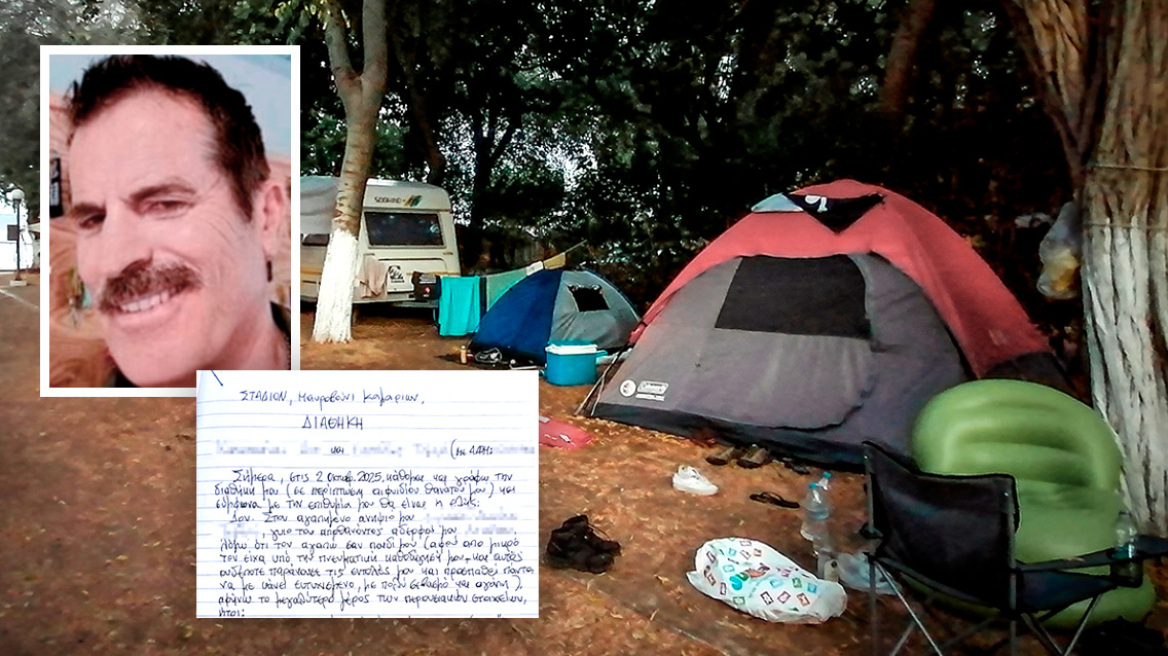 ΣΤΑΔΙΟΝ, Μαυροβούνι Καμαρίων,
ΔΙΑΘΗΚΗ
και
Σήμερα, στις 2 Οκτωβ. 2025, κάθομαι και γράφω την
διαθήκη μου (σε περίπτωση αιφνιδίου θανάτου μου) και
σύμφωνα με την επιθυμία μου θα είναι η εξής:
Στον αγαπημένο ανηψιό μου
, γυιο του αποθανόντος αδερφού μου
λόγω ότι τον αγαπώ σαν παιδί μου (αφού από μικρό
τον είχα υπό την πνευματική καθοδήγησή μου, και αυτός
ουδέποτε παράκουσε τις εντολές μου και προσπαθεί πάντα
να με κάνει ευτυχισμένο, με πολύ σεβασμό και αγάπη),
αφήνω το μεγαλύτερο μέρος των περουσιακών στοιχείων,
ήτοι:
Coleman